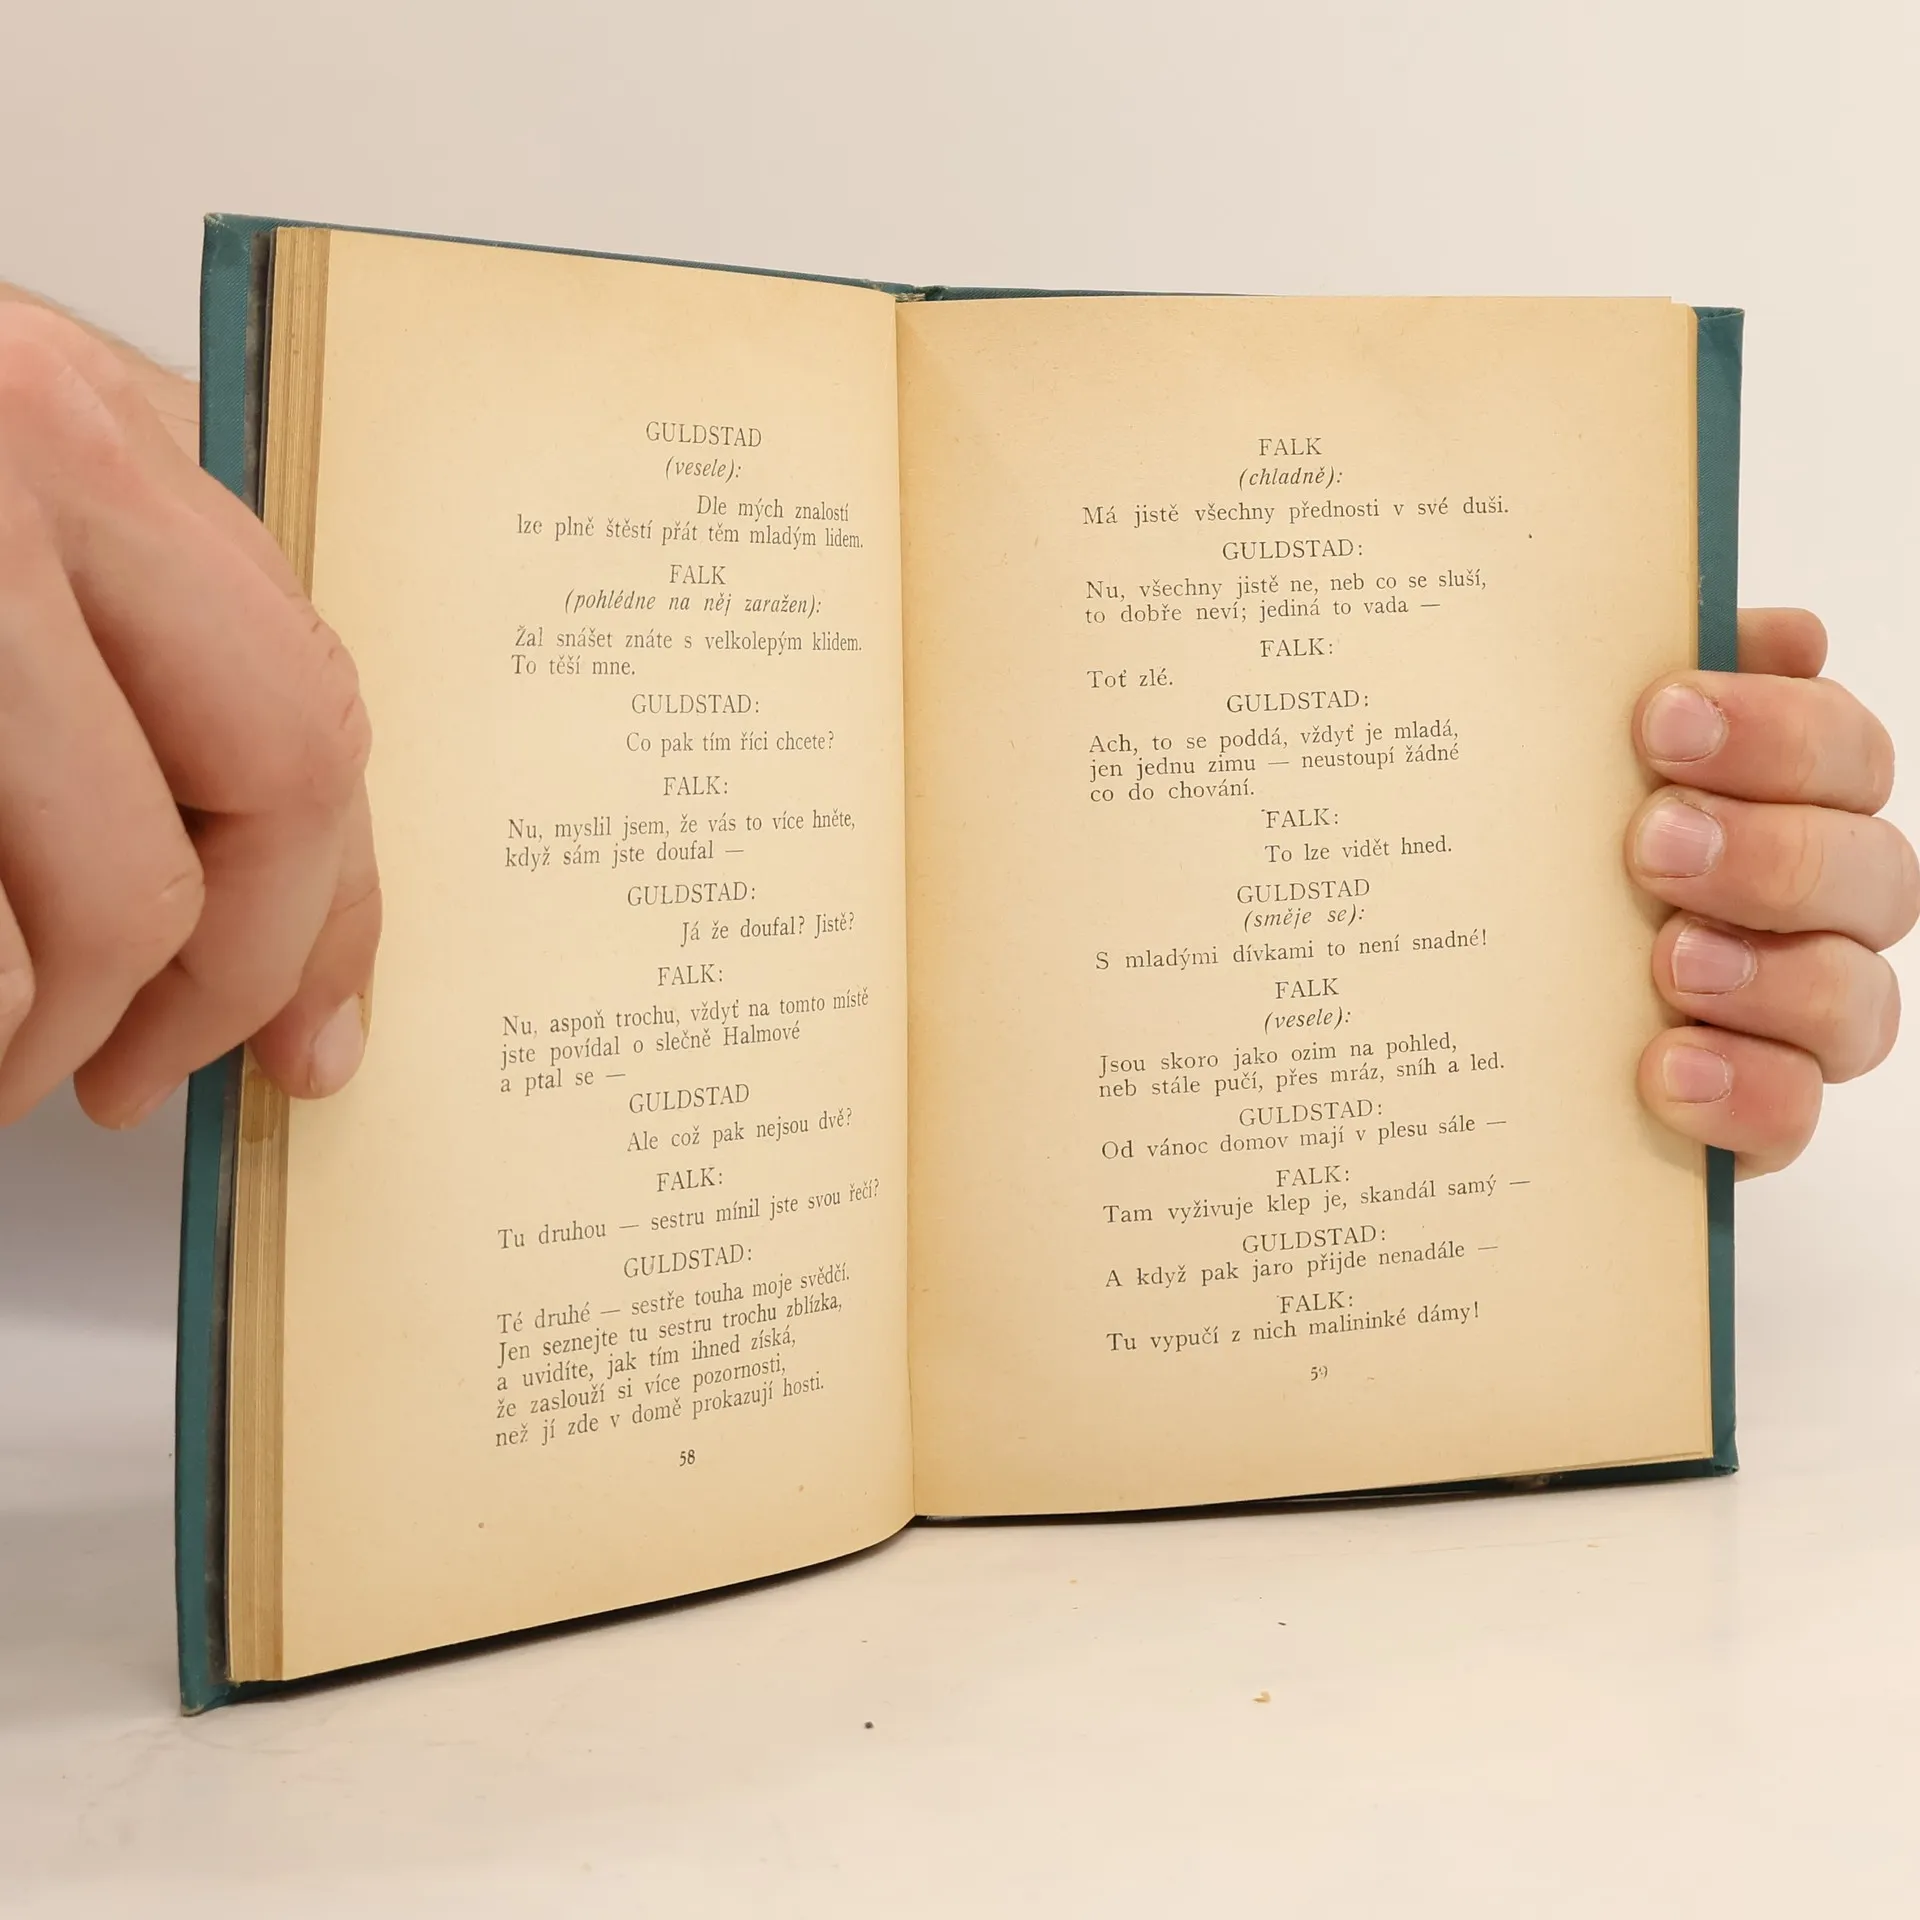 GULDSTAD
(vesele):
Dle mých znalostí
lze plně štěstí přát těm mladým lidem.
FALK
(pohlédne na něj zaražen):
Žal snášet znáte s velkolepým klidem.
To těší mne.
GULDSTAD:
Co pak tím říci chcete?
FALK:
Nu, myslil jsem, že vás to více hněte,
když sám jste doufal —
GULDSTAD:
Já že doufal? Jistě?
FALK:
Nu, aspoň trochu, vždyť na tomto místě
jste povídal o slečně Halmové
a ptal se —
GULDSTAD
Ale což pak nejsou dvě?
FALK:
Tu druhou — sestru mínil jste svou řečí?
GULDSTAD:
Té druhé — sestře touha moje svědčí.
Jen seznejte tu sestru trochu zblízka,
a uvidíte, jak tím ihned získá,
že zaslouží si více pozornosti,
než jí zde v domě prokazují hosti.
58
FALK
(chladně):
Má jistě všechny přednosti v své duši.
GULDSTAD:
Nu, všechny jistě ne, neb co se sluší,
to dobře neví; jediná to vada —
FALK:
Toť zlé.
GULDSTAD:
Ach, to se poddá, vždyť je mladá,
jen jednu zimu — neustoupí žádné
co do chování.
FALK:
To lze vidět hned.
GULDSTAD
(směje se):
S mladými dívkami to není snadné!
FALK
(vesele):
Jsou skoro jako ozim na pohled,
neb stále pučí, přes mráz, sníh a led.
GULDSTAD:
Od vánoc domov mají v plesu sále —
FALK:
Tam vyživuje klep je, skandál samý —
GULDSTAD:
A když pak jaro přijde nenadále —
FALK:
Tu vypučí z nich malininké dámy!
59